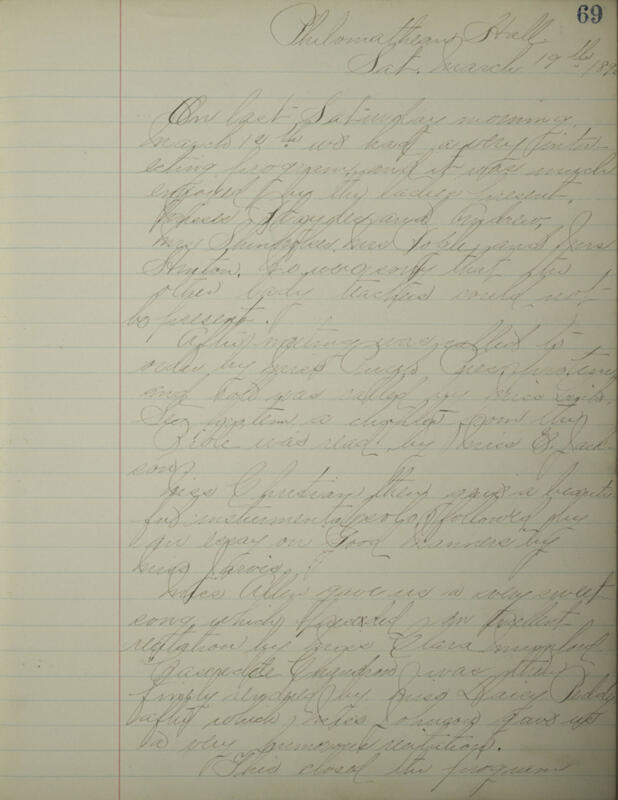 69
Philomathean Hall
Sat. March 19th 189
On last Saturday morning
March 12th we had a very inter-
esting program and it was much
enjoyed by the ladies present,
Misses and Andrew,
Mrs Mrs Noble and Mrs
Hinton. We were sorry that the
other lady teachers could not
be present.
After meeting was called to
order by Miss
and roll was called by Miss
Sec tem a chapter from the
Bible was read by Miss E. Jack-
son
Miss Christian then gave a beauti-
ful instrumental solo followed by
an essay on Good Manners by
Miss Jarvis.
Miss Allen gave us a very sweet
song which preceded an excellent
recitation by Miss Clara
was then
finely rendered by Miss Daisy
after which Miss Johnson gave us
a very humorous recitation.
This closed the program